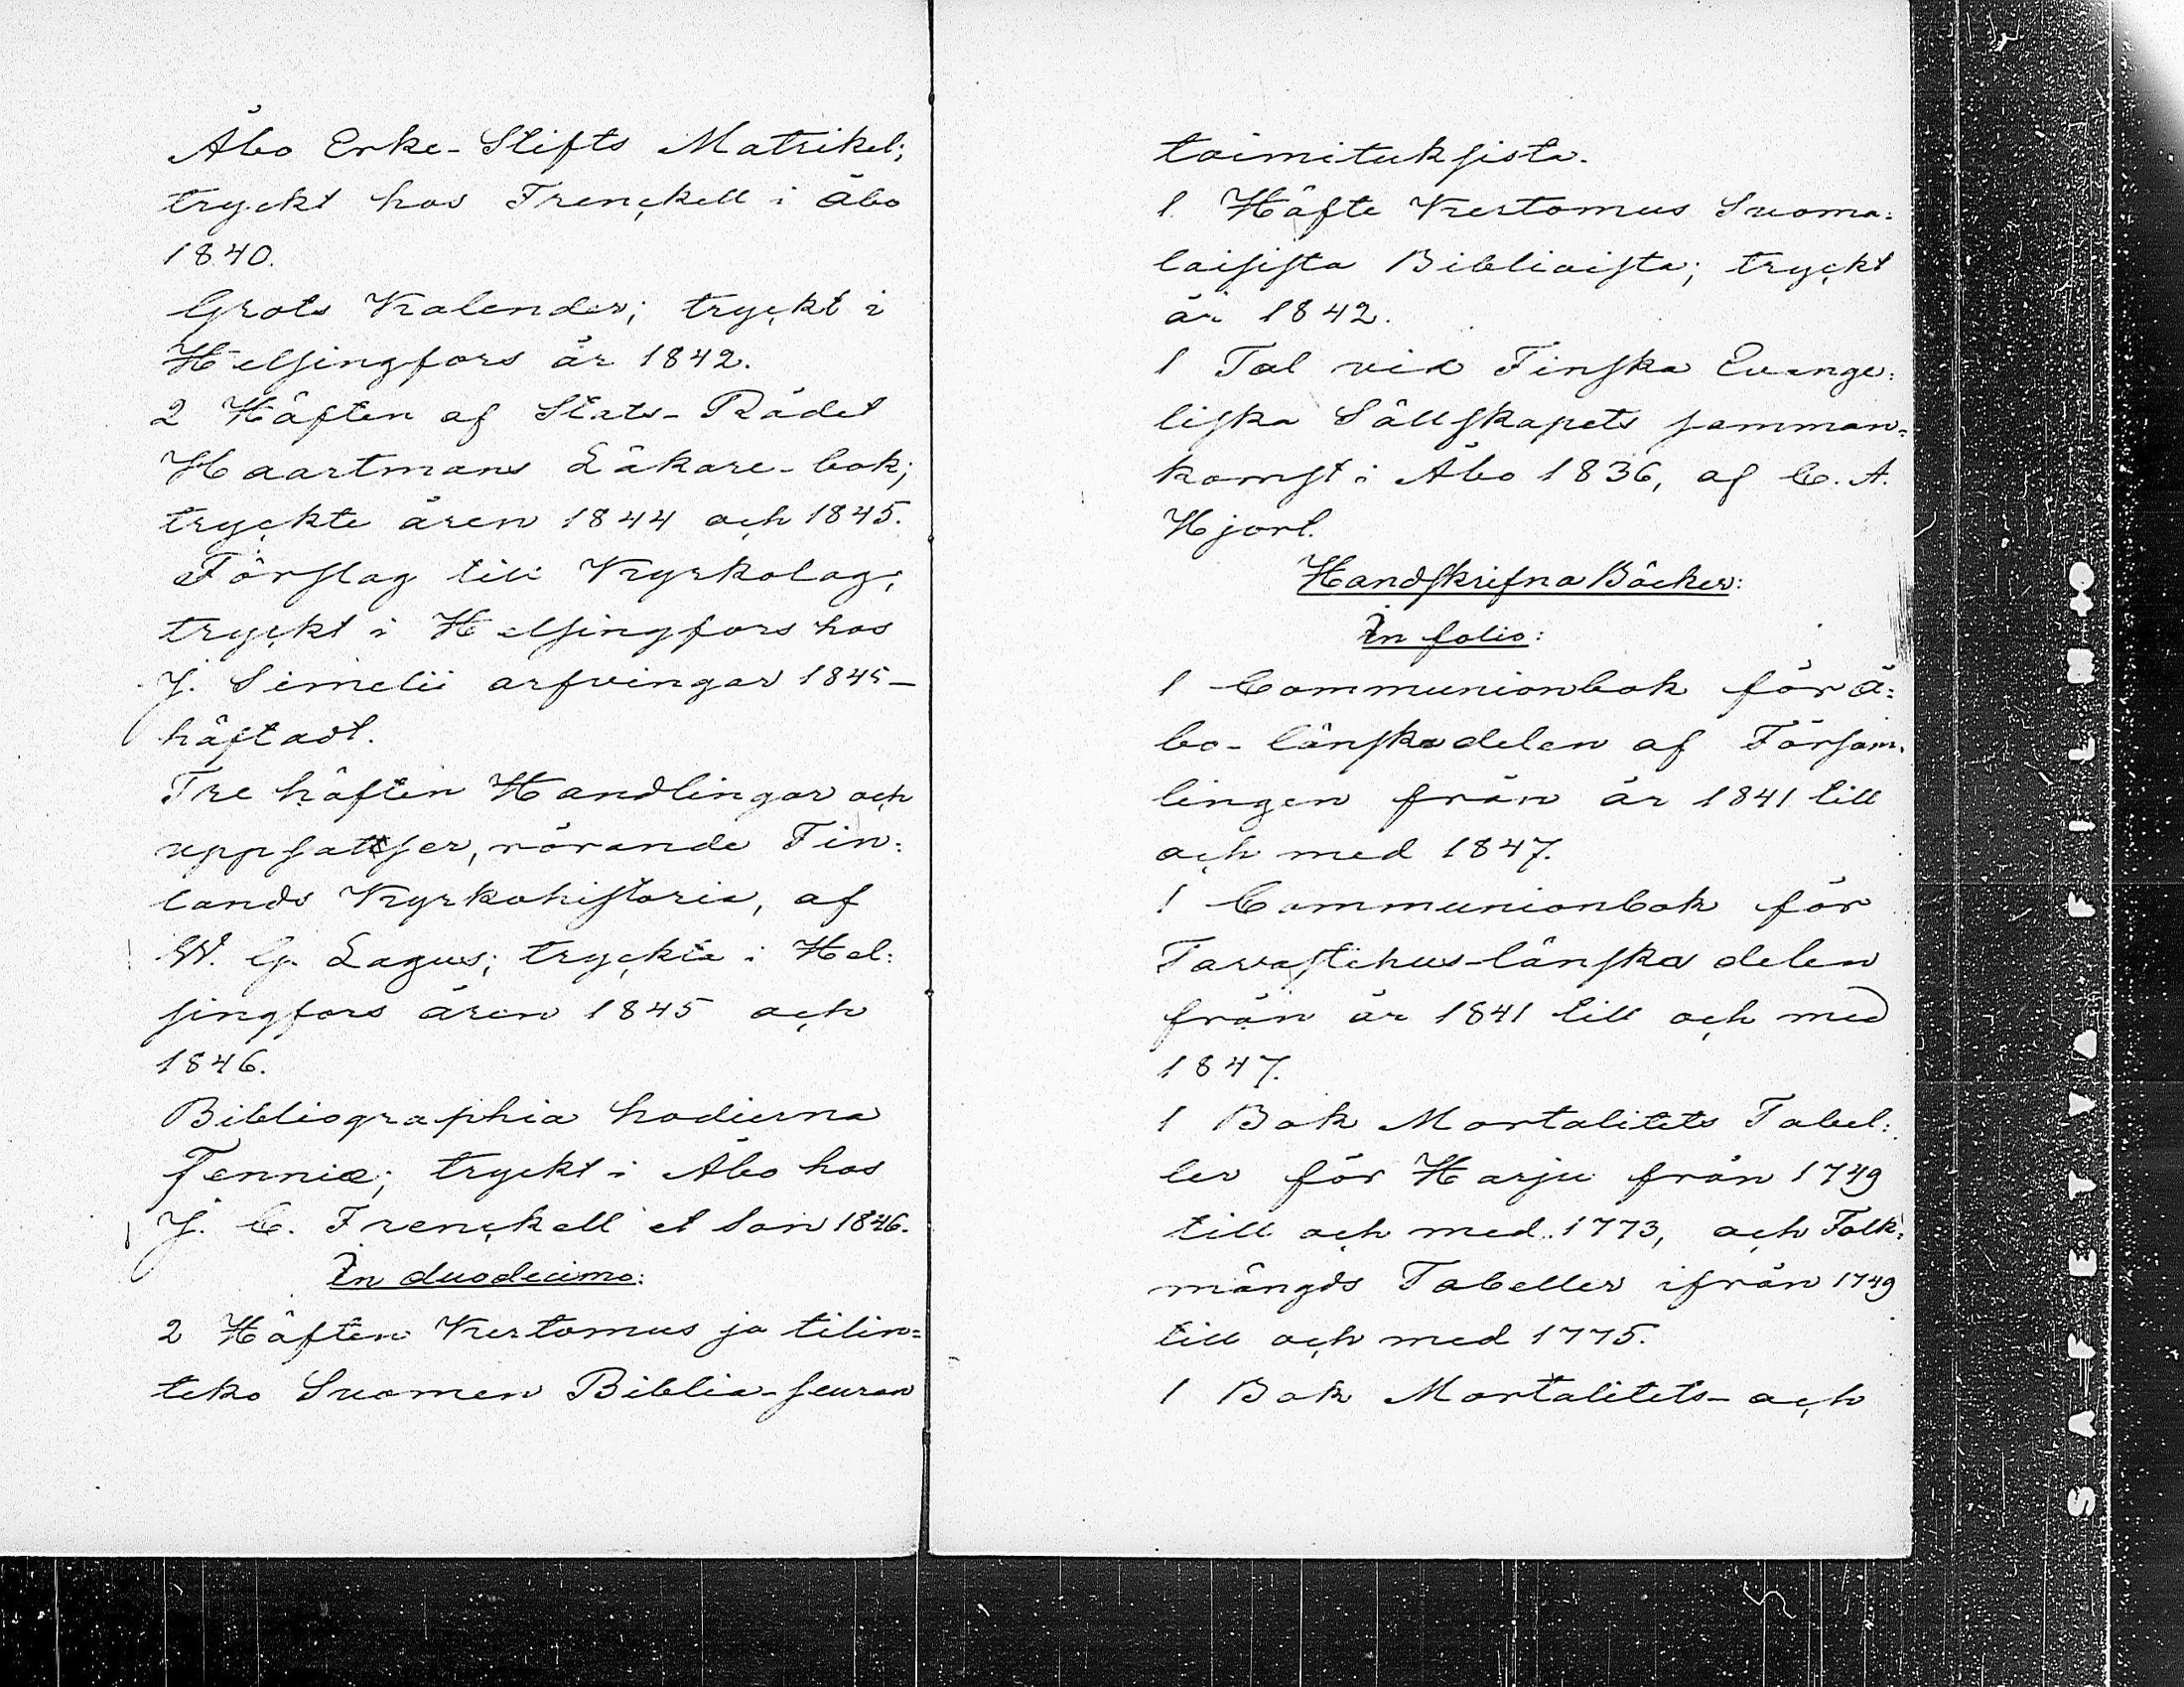 Åbo Erke-Stifts Matrikel;
tryckt hos Frenckell i Åbo
1840.
Grots Kalender; tryckt i
Helsingfors år 1842.
2 Häften af Stats-Rådet
Haartmans Läkare-bok;
tryckte åren 1844 och 1845.
Förslag till Kyrkolag;
tryckt i Helsingfors hos
J. Simelii arfvingar 1845-
häftadt.
Tre häften Handlingar och
uppsatser, rörande Fin=
lands Kyrkohistoria, af
W. G. Lagus; tryckte i Hel=
singfors åren 1845 och
1846.
Bibliographia hodierna
Fenniæ; tryckt i Åbo hos
J. C. Frenckell et Son 1846.
In duodecimo:
2 Häften Kertomus ja tilin=
teko Suomen Biblia-seuran
toimituksista.
1 Häfte Kertomus Suoma=
laisista Biblioista; tryckt
år 1842.
1 Tal vid Finska Evange=
liska Sällskapets samman=
komst i Åbo 1836, af C. A.
Hjort.
Handskrifna Böcker:
In folio:
1 Communionbok för Å=
bo-länska delen af Försam=
lingen från år 1841 till
och med 1847.
1 Communionbok för
Tavastehus-länska delen
från år 1841 till och med
1847.
1 Bok Mortalitets Tabel=
ler för Harju från 1749
till och med 1773, och Folk=
mängds Tabeller ifrån 1749
till och med 1775.
1 Bok Mortalitets- och
SAFETY FILM